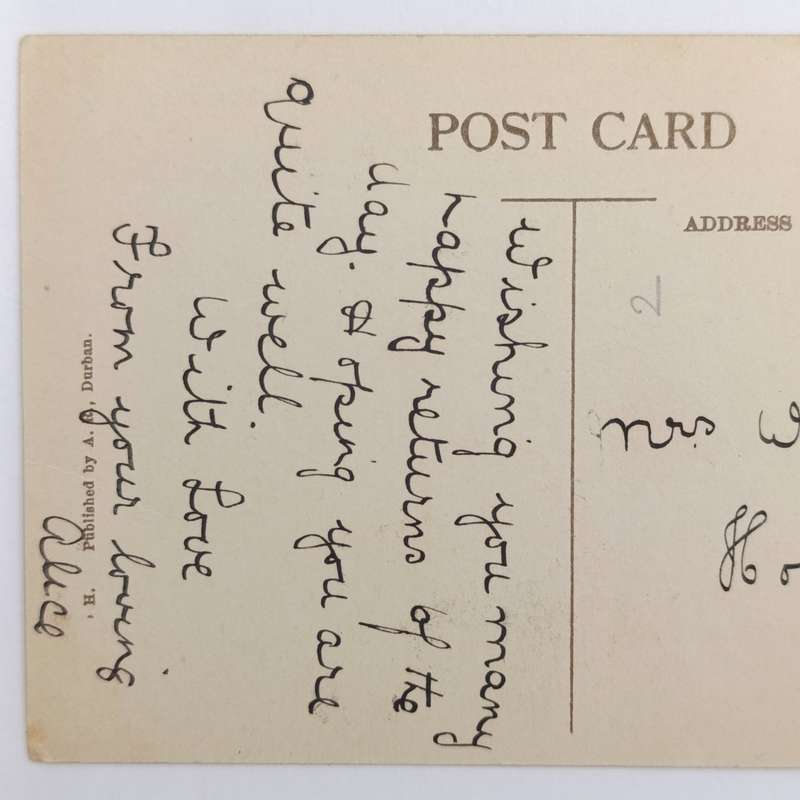 POST CARD
ADDRESS
Wishing you many
happy returns of the
day. Hoping you are
quite well.
With Love
From your loving
Alice
H. Published by A. , Durban.
2